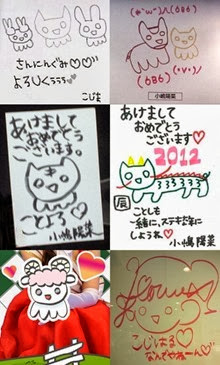 さんにんぐみ♡
よろしくぅぅぅ♡
こじま
(686)
(686)
小嶋陽菜
あけまして
おめでとう
ございます。
ことよろ♡
小嶋陽菜
あけまして
おめでとう
ございます♡
2012
辰
ことしも
一緒に、ステキな年に
しようね♡
小嶋陽菜
こじはる♡
なんでやねーん♡